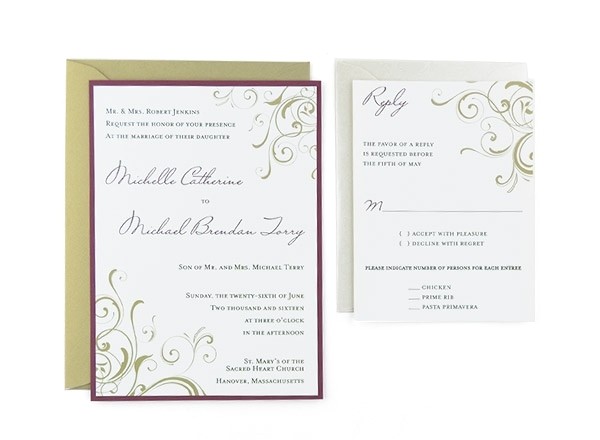 Mr. & Mrs. Robert Jenkins
Request the honor of your presence
At the marriage of their daughter
Michelle Catherine
to
Michael Brendan Terry
Son of Mr. and Mrs. Michael Terry
Sunday, the twenty-sixth of June
Two thousand and sixteen
at three o'clock
in the afternoon
St. Mary's of the
Sacred Heart Church
Hanover, Massachusetts
Reply
The favor of a reply
is requested before
the fifth of May
M
( ) accept with pleasure
( ) decline with regret
Please indicate number of persons for each entree
____ Chicken
____ Prime Rib
____ Pasta Primavera